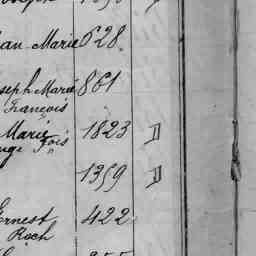 ean-Marie 628.
oseph Marie 861
François
Marie 1823 D
uge Fois
1359 D
Ernest 422
Roch